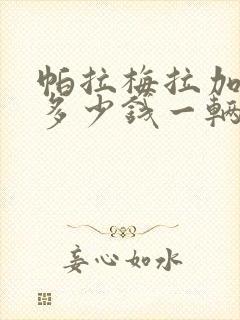 帕拉梅拉加
多少钱一辆
妄心如水